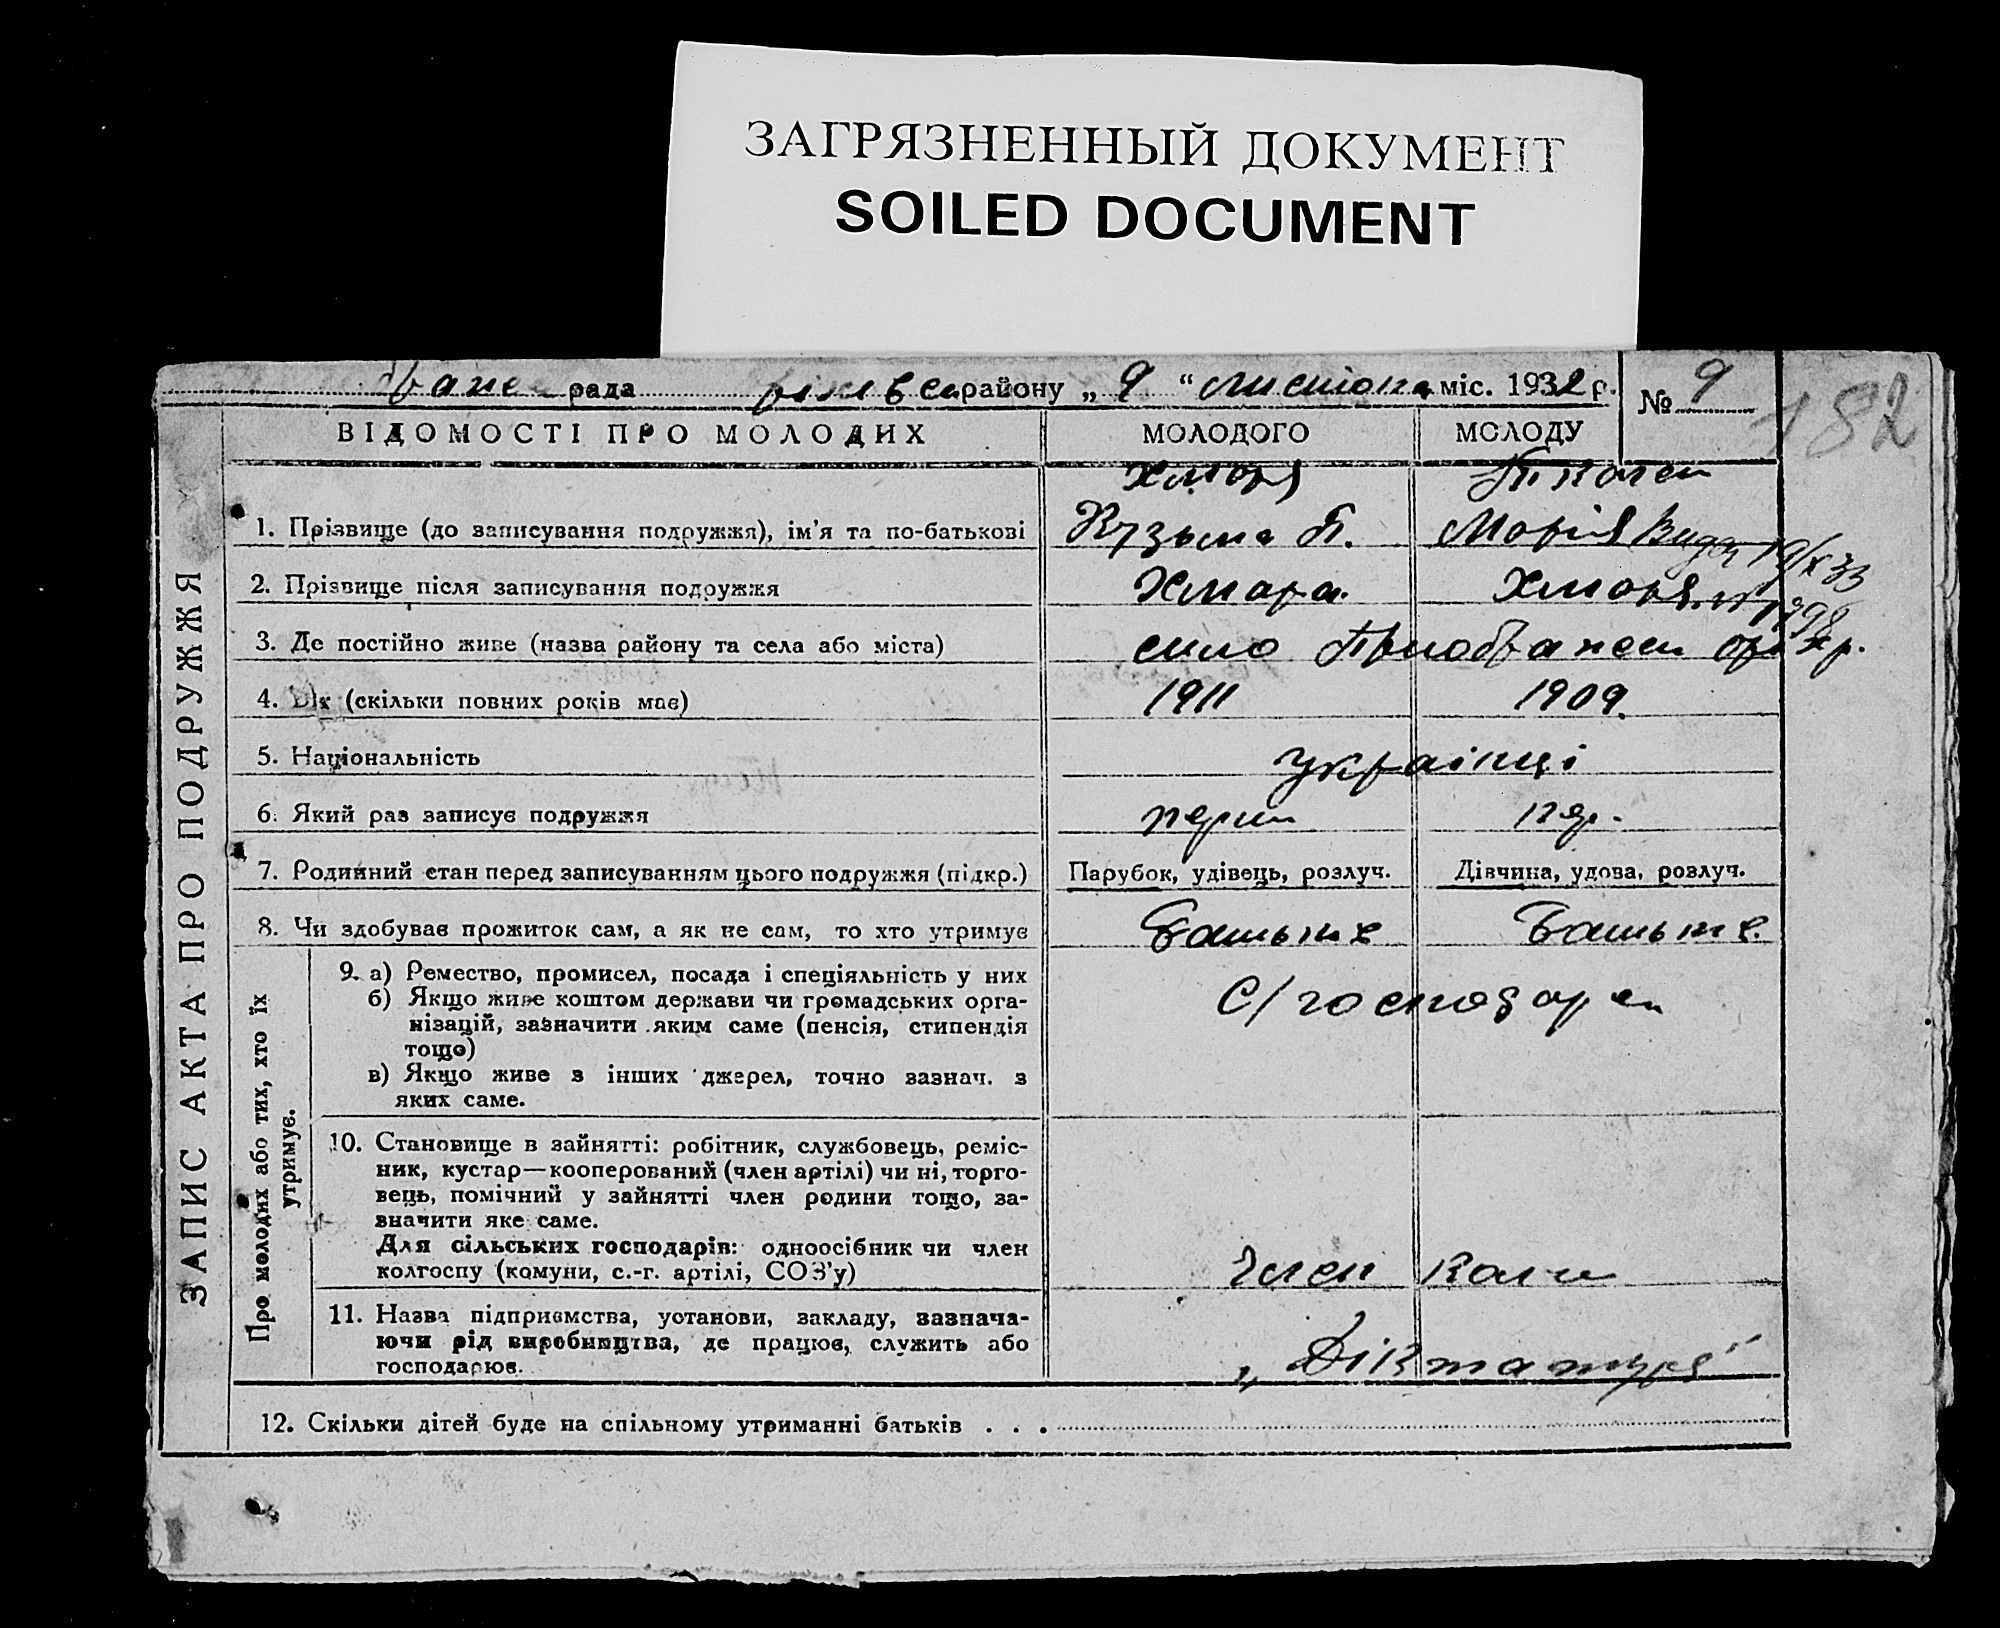 ЗАГРЯЗНЕННЫЙ ДОКУМЕНТ
SOILED DOCUMENT
рада району „ 9 “ листопа міс. 1932 р. № 9
182
ВІДОМОСТІ ПРО МОЛОДИХ МОЛОДОГО МОЛОДУ
ЗАПИС АКТА ПРО ПОДРУЖЖЯ
Хмара
1. Прізвище (до записування подружжя), ім'я та по-батькові Кузьма П. Марія
2. Прізвище після записування подружжя Хмара Хмара
3. Де постійно живе (назва району та села або міста) село
4. Вік (скільки повних років має) 1911 1909
5. Національність українці
6. Який раз записує подружжя перш пер.
7. Родинний стан перед записуванням цього подружжя (підкр.) Парубок, удівець, розлуч. Дівчина, удова, розлуч.
8. Чи здобуває прожиток сам, а як не сам, то хто утримує Батьке Батьке
Про молодих або тих, хто їх утримує.
9. а) Ремество, промисел, посада і спеціяльність у них
б) Якщо живе коштом держави чи громадських орга-
нізацій, зазначити яким саме (пенсія, стипендія
тощо)
в) Якщо живе з інших джерел, точно зазнач. з
яких саме.
С/господар
10. Становище в зайнятті: робітник, службовець, реміс-
ник, кустар—кооперований (член артілі) чи ні, торго-
вець, помічний у зайнятті член родини тощо, за-
значити яке саме.
Для сільських господарів: одноосібник чи член
колгоспу (комуни, с.-г. артілі, СОЗ'у) член
11. Назва підприємства, установи, закладу, зазнача-
ючи рід виробництва, де працює, служить або
господарює. „Діктатура"
12. Скільки дітей буде на спільному утриманні батьків . . .